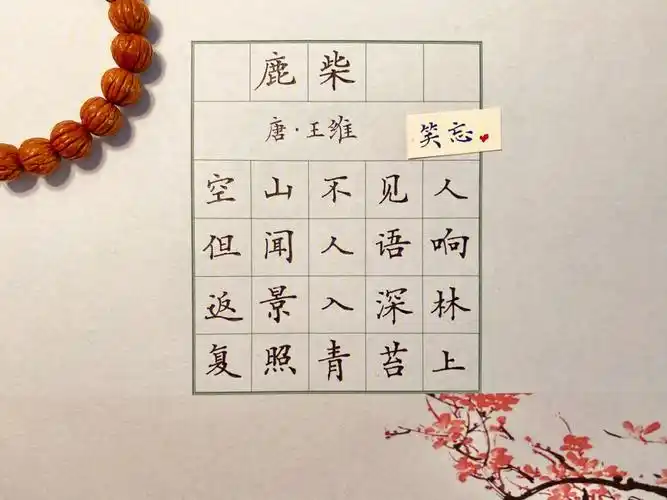 鹿柴
唐·王维
笑忘
空山不见人
但闻人语响
返景入深林
复照青苔上